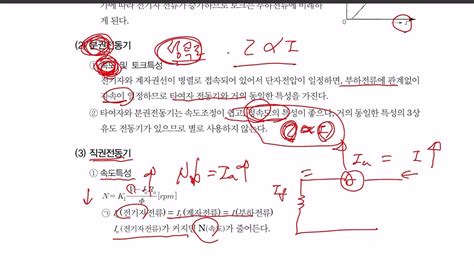 가에 따라 전기자 전류가 증가하므로 토크는 부하전류에 비례하
게 된다.
(2) 분권전동기
τ ∝ I
① 속도 및 토크특성
전기자와 계자권선이 병렬로 접속되어 있어서 단자전압이 일정하면, 부하전류에 관계없이
자속이 일정하므로 타여자 전동기와 거의 동일한 특성을 가진다.
② 타여자와 분권전동기는 속도조정이 쉽고, 정속도의 특성이 좋으나, 거의 동일한 특성의 3상
유도 전동기가 있으므로 별로 사용하지 않는다.
τ ∝ I
(3) 직권전동기
① 속도특성
N↓ = Ia↑
Ia = I↑
If
㉠ Ia(전기자전류) = If(계자전류) = I(부하전류)
Ia(전기자전류)가 커지면 N(속도)가 줄어든다.